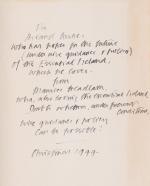 To
who has hopes for the future
under wise guidance & policy
of the Essential Ireland,
which he loves.
from
Maurice Headlam
who, also loving the essential Ireland,
Doubts whether, under present conditions,
wise guidance & policy
can be possible!
Christmas 1949